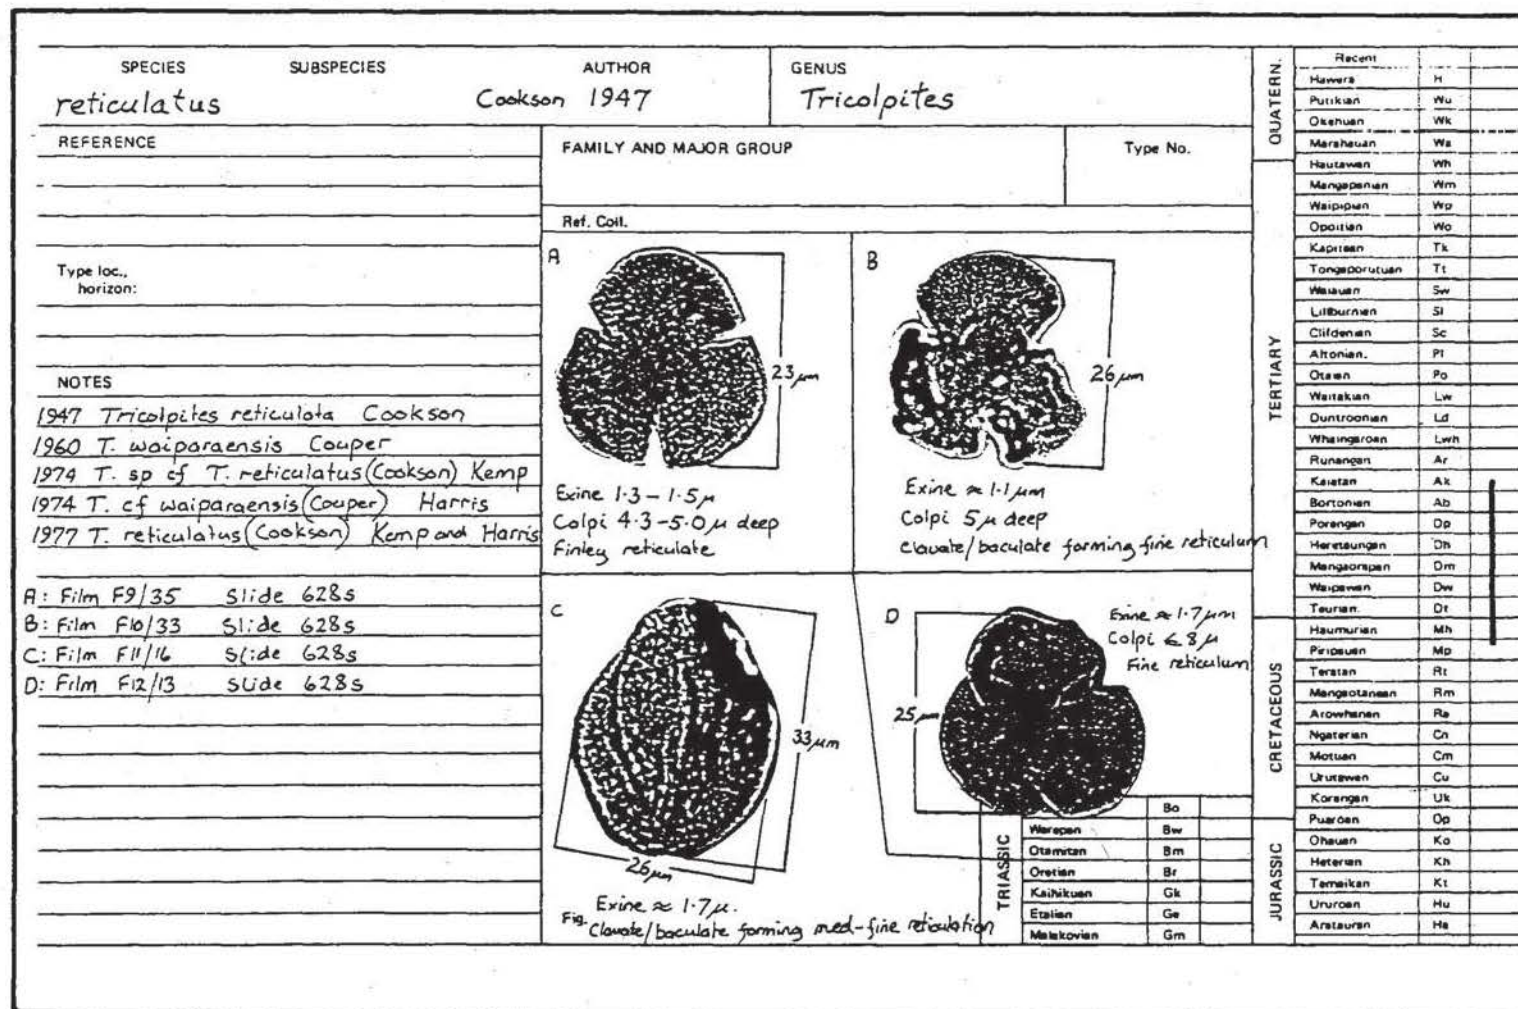 SPECIES SUBSPECIES AUTHOR GENUS
reticulatus Cookson 1947 Tricolpites
REFERENCE
FAMILY AND MAJOR GROUP Type No.
Ref. Coll.
Type loc.,
horizon:
NOTES
1947 Tricolpites reticulata Cookson
1960 T. waiparaensis Couper
1974 T. sp cf T. reticulatus (Cookson) Kemp
1974 T. cf waiparaensis (Couper) Harris
1977 T. reticulatus (Cookson) Kemp and Harris
A: Film F9/35 Slide 628s
B: Film F10/33 Slide 628s
C: Film F11/16 Slide 628s
D: Film F12/13 Slide 628s
A
23 μm
Exine 1.3 – 1.5 μ
Colpi 4.3 – 5.0 μ deep
Finley reticulate
B
26 μm
Exine ≈ 1.1 μm
Colpi 5 μ deep
Clavate/baculate forming fine reticulum
C
33 μm
26 μm
Exine ≈ 1.7 μ.
Fig. Clavate/baculate forming med-fine reticulation
D
Exine ≈ 1.7 μm
Colpi ≤ 8 μ
Fine reticulum
25 μm
TRIASSIC
Bo
Warepan Bw
Otamitan Bm
Oretian Br
Kaihikuan Gk
Etalian Ge
Malakovian Gm
QUATERN.
TERTIARY
CRETACEOUS
JURASSIC
Recent
Hawera H
Putikian Wu
Okehuan Wk
Marahauan Wa
Hautawan Wh
Mangapanian Wm
Waipipian Wp
Opoitian Wo
Kapitean Tk
Tongaporutuan Tt
Waiauan Sw
Lillburnian Sl
Clifdenian Sc
Altonian. Pl
Otaian Po
Waitakian Lw
Duntroonian Ld
Whaingaroan Lwh
Runangan Ar
Kaiatan Ak
Bortonian Ab
Porangan Dp
Heretaungan Dh
Mangaorapan Dm
Waipawan Dw
Teurian. Dt
Haumurian Mh
Piripauan Mp
Teratan Rt
Mangaotanean Rm
Arowhanan Ra
Ngaterian Cn
Motuan Cm
Urutawan Cu
Korangan Uk
Puaroan Op
Ohauan Ko
Heterian Kh
Temaikan Kt
Ururoan Hu
Aratauran Ha